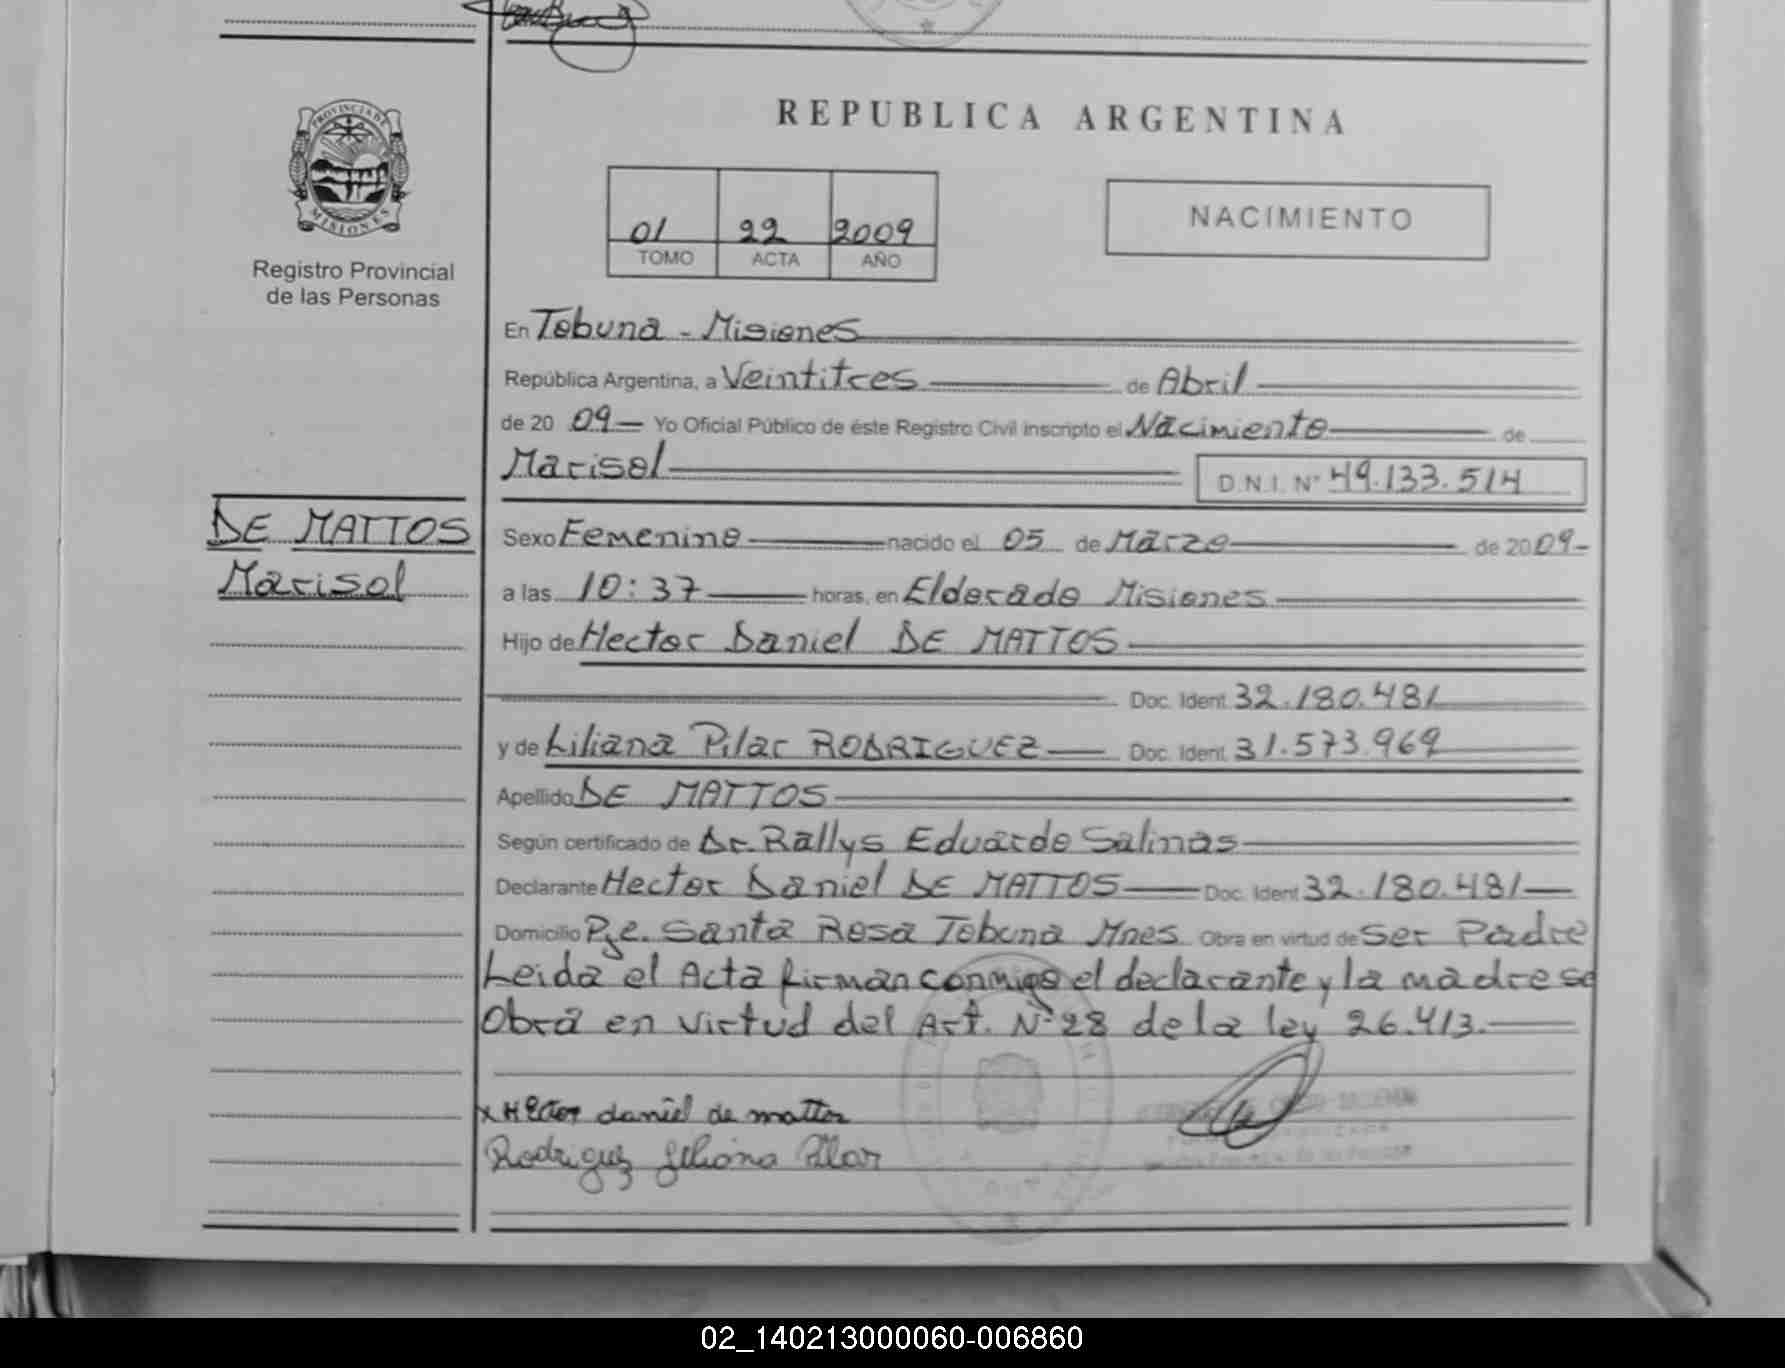 REPUBLICA ARGENTINA
PROVINCIA DE MISIONES
Registro Provincial
de las Personas
01 22 2009
TOMO ACTA AÑO
NACIMIENTO
En Tobuna - Misiones
República Argentina, a Veintitres de Abril
de 20 09 Yo Oficial Público de éste Registro Civil inscripto el Nacimiento de
Marisol D.N.I. N° 49.133.514
DE MATTOS
Marisol
Sexo Femenino nacido el 05 de Marzo de 2009-
a las 10:37 horas, en Eldorado Misiones
Hijo de Hector Daniel DE MATTOS
Doc. Ident. 32.180.481
y de Liliana Pilar RODRIGUEZ Doc. Ident. 31.573.969
Apellido DE MATTOS
Según certificado de Dr. Rallys Eduardo Salinas
Declarante Hector Daniel DE MATTOS Doc. Ident. 32.180.481
Domicilio Pje. Santa Rosa Tobuna Mnes. Obra en virtud de Ser Padre
Leida el Acta firman conmigo el declarante y la madre se
Obra en virtud del Art. N°28 de la ley 26.413.
x Hector daniel de mattos
Rodriguez Liliana Pilar
02_140213000060-006860